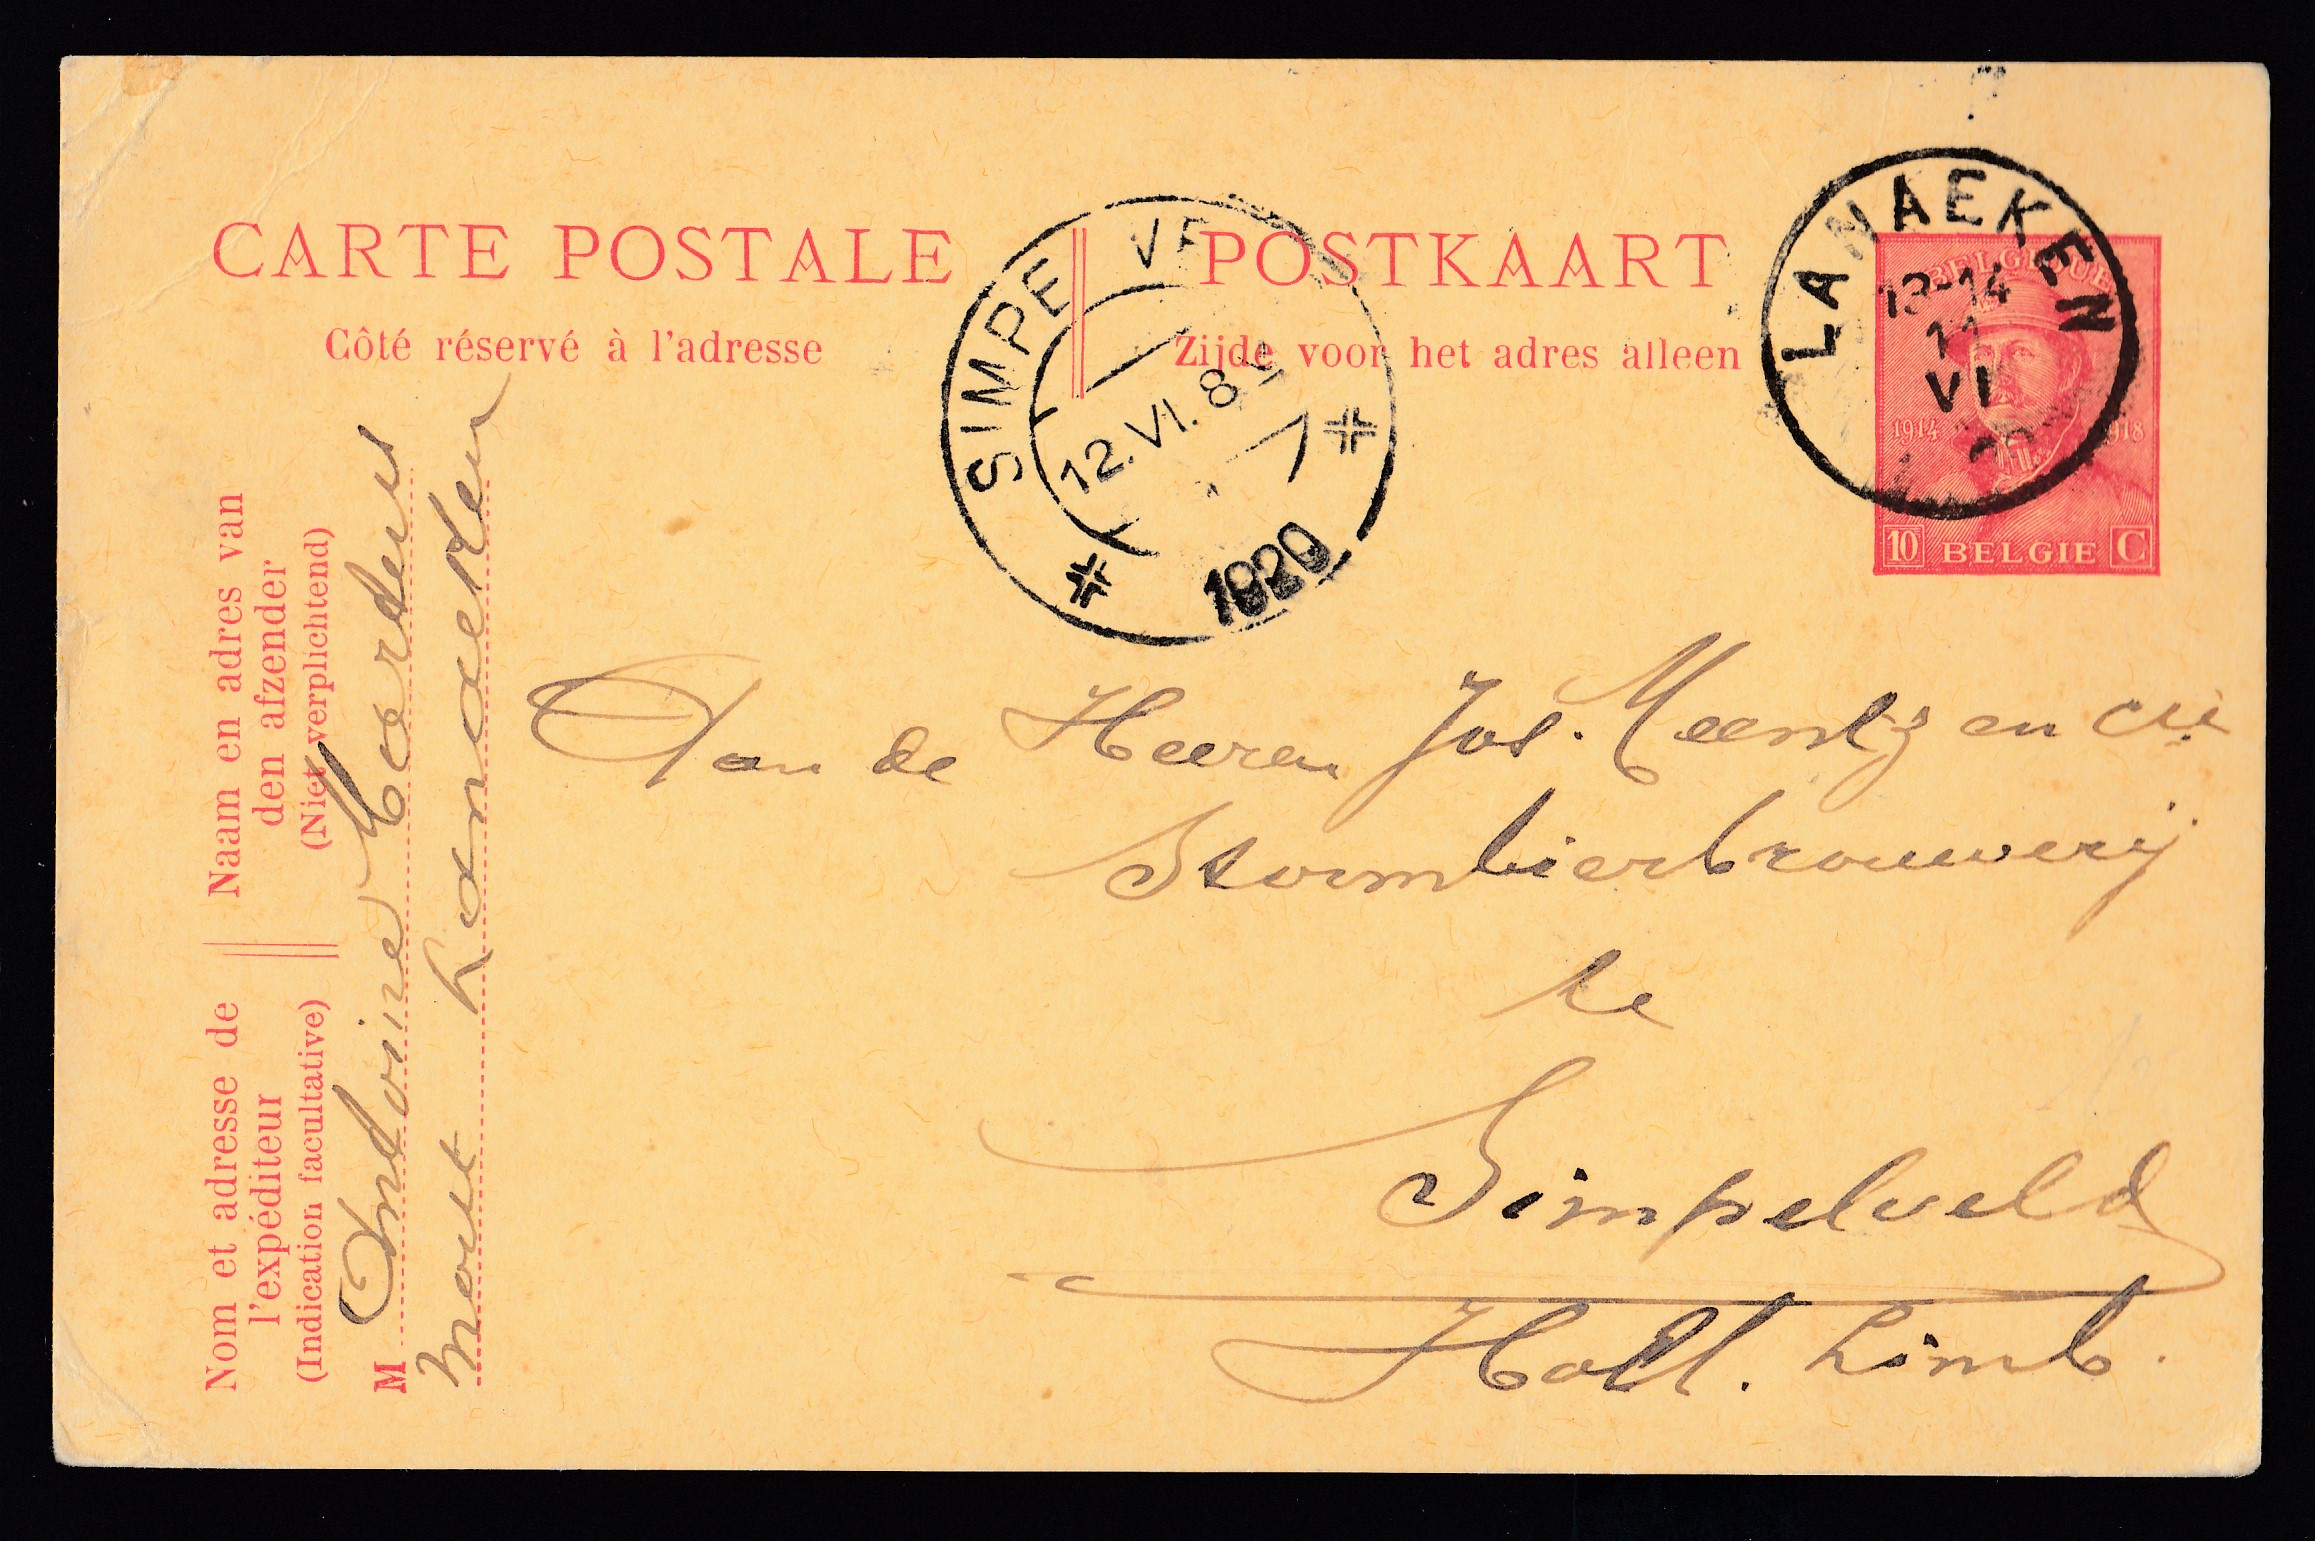 CARTE POSTALE
POSTKAART
Côté réservé à l'adresse
Zijde voor het adres alleen
SIMPE VE
12.VI. 8 V
1920
LANAEKEN
13-14
11
VI
20
BELGIQUE
1914 1918
10 BELGIE C
Naam en adres van
den afzender
(Niet verplichtend)
Nom et adresse de
l'expéditeur
(Indication facultative)
M Antoine Martens
mout Lanaeken
Aan de Heeren Jos. Meentz en Cie
Stoombierbrouwerij
te
Simpelveld
Holl. Limb.